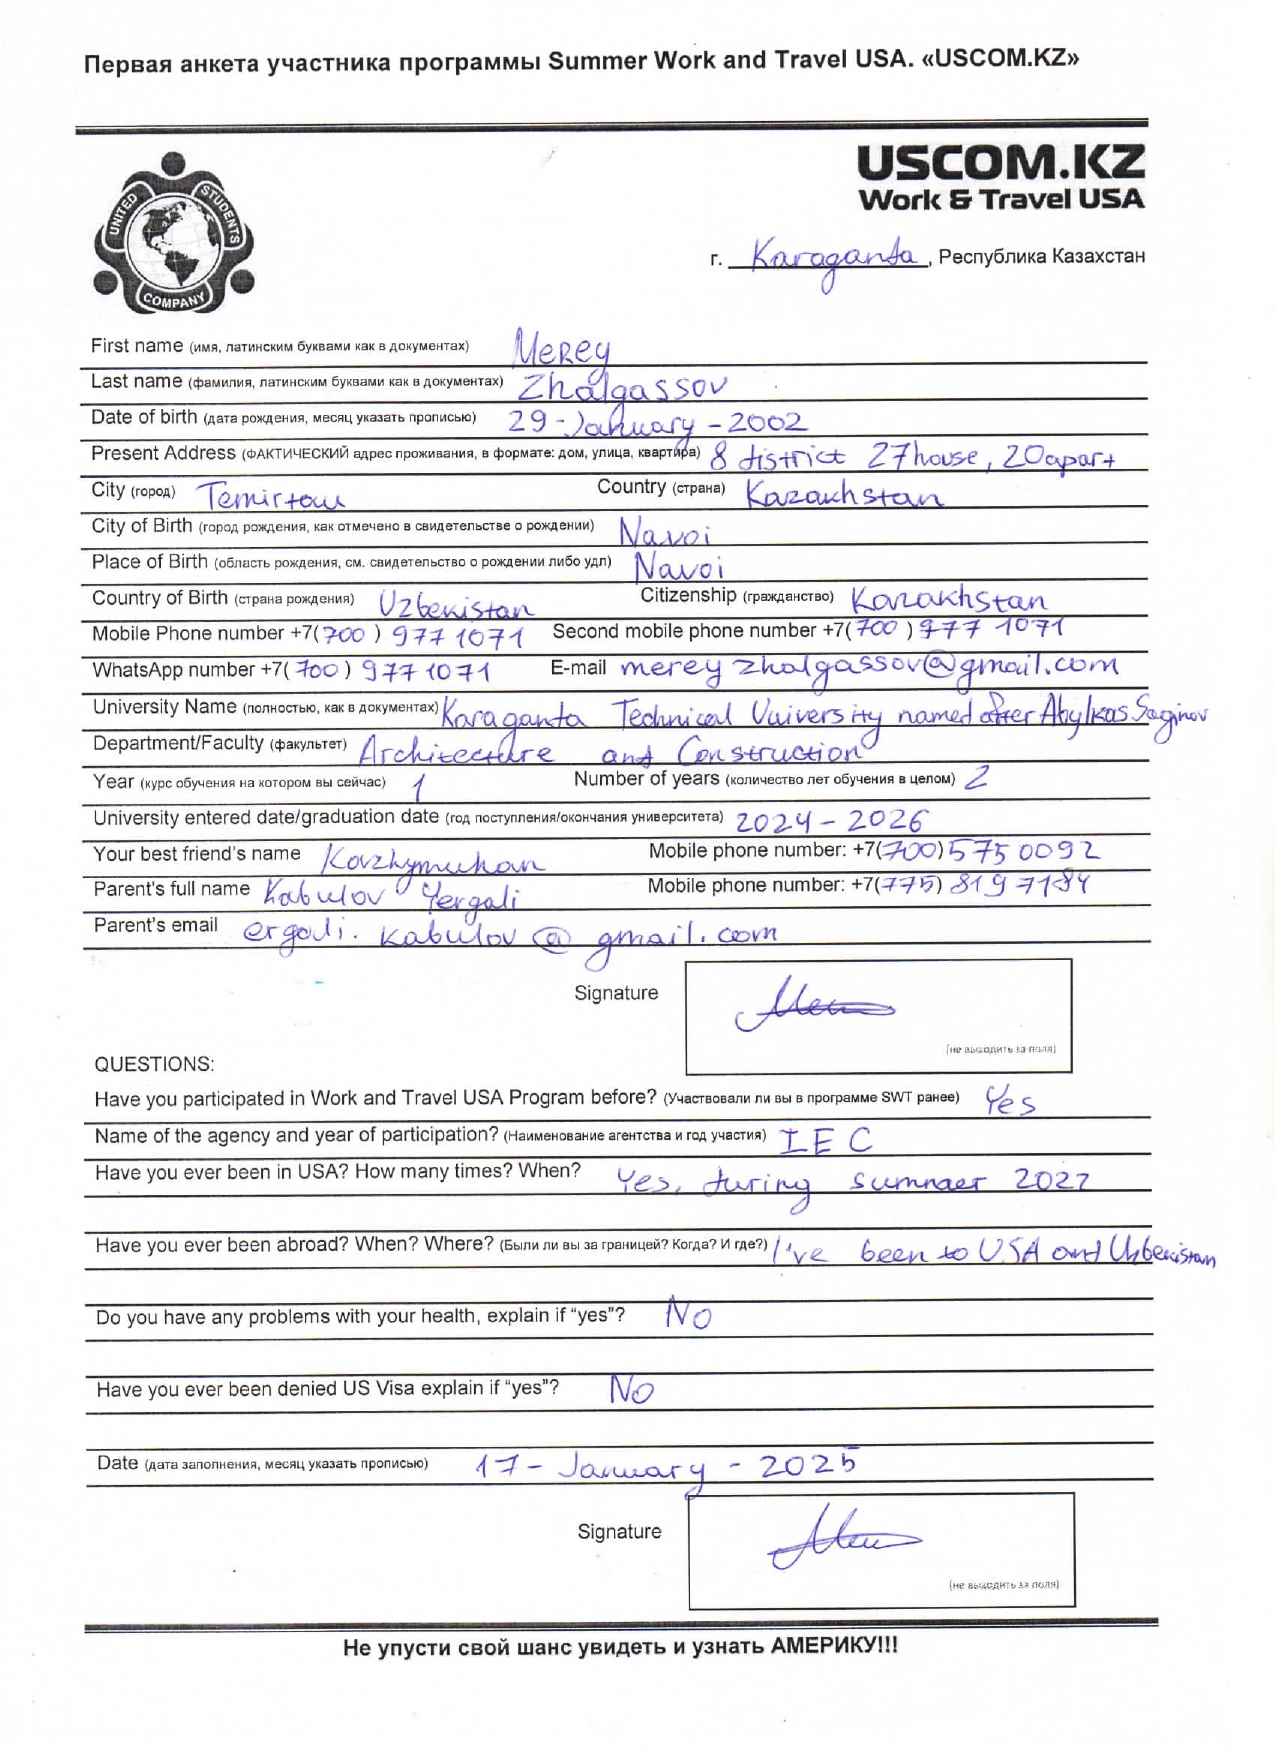 Первая анкета участника программы Summer Work and Travel USA. «USCOM.KZ»
USCOM.KZ
Work & Travel USA
UNITED STUDENTS COMPANY
г. Karaganda, Республика Казахстан
First name (имя, латинским буквами как в документах) Merey
Last name (фамилия, латинским буквами как в документах) Zhalgassov
Date of birth (дата рождения, месяц указать прописью) 29-January-2002
Present Address (ФАКТИЧЕСКИЙ адрес проживания, в формате: дом, улица, квартира) 8 district 27house, 20apart
City (город) Temirtau Country (страна) Kazakhstan
City of Birth (город рождения, как отмечено в свидетельстве о рождении) Navoi
Place of Birth (область рождения, см. свидетельство о рождении либо удл) Navoi
Country of Birth (страна рождения) Uzbekistan Citizenship (гражданство) Kazakhstan
Mobile Phone number +7(700) 977 1071 Second mobile phone number +7(700) 977 1071
WhatsApp number +7(700) 977 1071 E-mail merey zhalgassov@gmail.com
University Name (полностью, как в документах) Karaganda Technical University named after Abylkas Saginov
Department/Faculty (факультет) Architecture and Construction
Year (курс обучения на котором вы сейчас) 1 Number of years (количество лет обучения в целом) 2
University entered date/graduation date (год поступления/окончания университета) 2024-2026
Your best friend's name Kazhymukan Mobile phone number: +7(700) 575 0092
Parent's full name Kabulov Yergali Mobile phone number: +7(775) 819 7184
Parent's email ergali.kabulov@gmail.com
Signature
(не выходить за поля)
QUESTIONS:
Have you participated in Work and Travel USA Program before? (Участвовали ли вы в программе SWT ранее) Yes
Name of the agency and year of participation? (Наименование агентства и год участия) IEC
Have you ever been in USA? How many times? When? Yes, during summer 2022
Have you ever been abroad? When? Where? (Были ли вы за границей? Когда? И где?) I've been to USA and Uzbekistan
Do you have any problems with your health, explain if “yes”? No
Have you ever been denied US Visa explain if “yes”? No
Date (дата заполнения, месяц указать прописью) 17-January-2025
Signature
(не выходить за поля)
Не упусти свой шанс увидеть и узнать АМЕРИКУ!!!